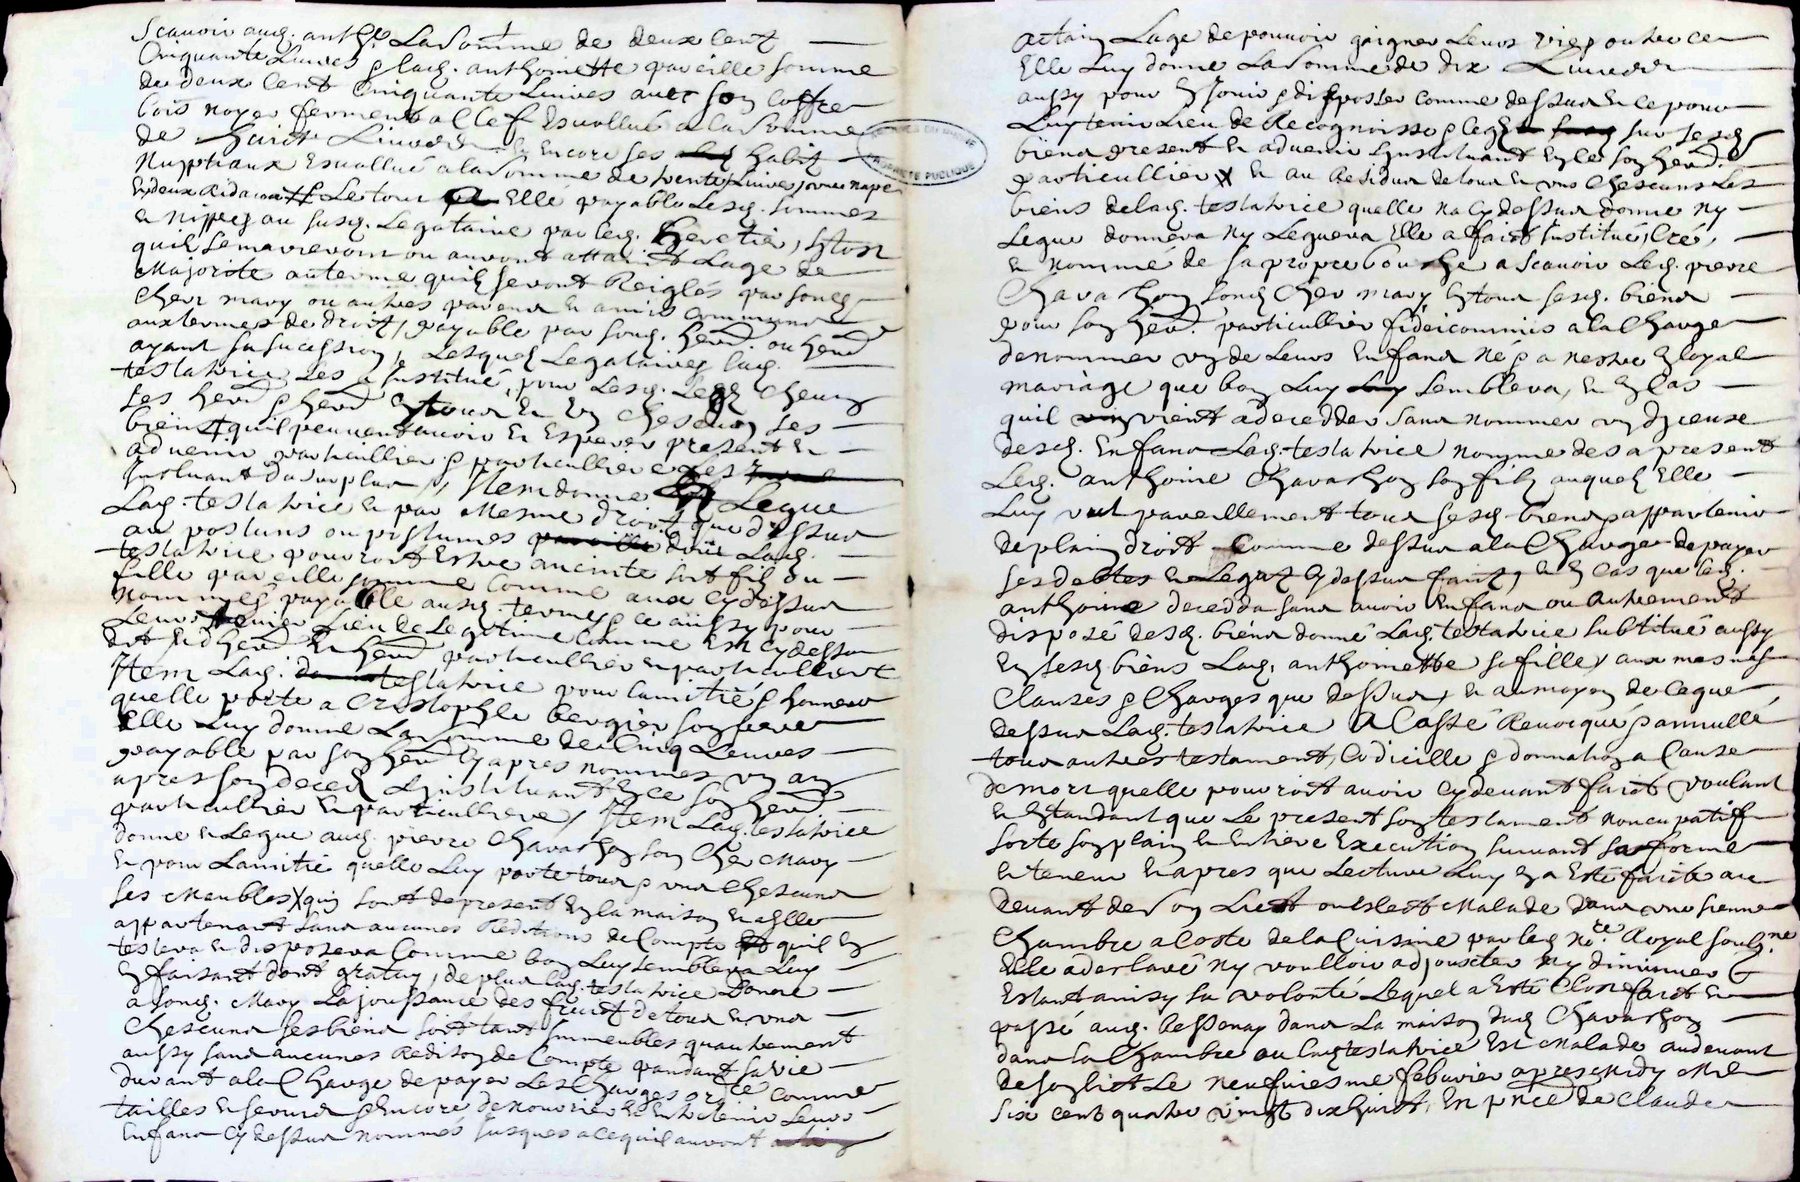 Scavoir aud. anth.e La Somme de deux Cent
Cinquante Livres & lad. anthoinette pareille somme
de deux Cent Cinquante Livres avec son Coffre
bois noyer ferment a Clef Esvallué a la Somme
de huict Livres & Encore ses habitz
Nuptiaux Esvallué a la Somme de trente Livres, une nape
Le tout Elle payable Lesd. sommes
& nippes au susd. Legataire par led. heretier, sitost
quilz se marieront ou auront attaint Lage de
Majorité au terme quilz seront Reiglés par sond.
Cher mary ou autres parens & amis Communs
aux termes de droit, payable par sond. herd. ou herd
ayant sa sucession, Lesquelz Legataires lad.
testatrice Les a Institué, pour Lesd. Legz Cheung
ses herd & herd En tous & Un Chescung ses
biens quil peuvent avoir & Esperer present &
advenir particullier & particulliere
Instituant du surplus, Item donne & Legue
Lad. testatrice & par Mesme droit que dessus
au postuns ou postumes dont Lad.
testatrice pourroit Estre aincinte soit filz ou
fille pareille somme Comme aux Cy dessus
nommés payable ausd. termes & ce aussy pour
Leurs tenir Lieu de Legitime Comme Est Cy dessus
dit & herd particullier & particulliere
Item Lad. testatrice pour lamitié & honneur
quelle porte a Cristophle bergier son frere
Elle Luy donne La somme de Cinq Livres
payable par son herd Cy apres nommés, un an
apres son deced Linstituant En Ce son herd
particullier & particulliere, Item Lad. testatrice
donne & Legue aud. pierre Chavassion son Cher Mary
& pour Lamitié quelle Luy porte tous & uns Chescuns
ses Meubles quy sont de present En la maison & a Elle
appartenant sans aucunes Reditions de Compte quil En
testera & disposera Comme bon Luy semblera Luy
En faisant dont gratuy, de plus lad. testatrice Donne
a sond. Mary La jouissance des fruict de tous & uns
Chescuns ses biens soit tant Immeubles quautrement
aussy sans aucunes Redition de Compte pandant sa vie
durant a la Charge de payer Les Charges Comme
tailles & servis & Encore de nourrir & Entretenir Leurs
Enfans Cy dessus nommés Jusques a ce quil auront
actain Lage de pouvoir gaigner Leurs vies outre ce
Elle Luy donne La Somme de dix Livres
aussy pour En Jouir & disposer Comme dessus & ce pour
Luy tenir Lieu de Recognoisse & Legz sur sesd.
biens present & advenir Linstituant En Ce son herd.
particullier & au Residus de tous & uns Chescuns Les
biens de lad. testatrice quelle na Cy dessus donne ny
Legue donnera ny Leguera Elle a faict Institué, Créé,
& nommé de sa propre bouche a Scavoir Led. pierre
Chavassion sond Cher mary En tous sesd. biens
pour son herd. particullier fideicommis a la Charge
de nommer un de Leurs Enfans né & a nestre En loyal
mariage que bon Luy semblera, & En Cas
quil vient a decedder sans nommer un dyceuse
desd. Enfans Lad. testatrice nomme des a present
Led. anthoine Chavassion son filz auquel Elle
Luy veut pareillement tous sesd. biens appartenir
de plain droit Comme dessus a la Charge de payer
ses debtes & Legaz Cy dessus faict, & En Cas que led.
anthoine decedda sans avoir Enfans ou Autrement
disposé desd. biens donné Lad. testatrice substitué aussy
En sesd. biens Lad. anthoinette sa fille, aux mesmes
Clauses & Charges que dessus, & au moyen de Ceque
dessus Lad. testatrice A Cassé Revocqué & annullé
tous autres testament, Codicille & donnation a Cause
de mort quelle pourroit avoir Cy devant faict Voulant
& Entandant que Le present son testament noncupatiff
sorte son plain & Entiere Execution suivant sa forme
& teneur & apres que Lecture Luy En a Esté faicte au
devant de son Lict ou Elle Est Malade dans une sienne
Chambre a Coste de la Cuisine par led no.re Royal soub.ne
Elle a desclaré ny voulloir adjouxter ny diminuer
Estant ainsy sa volonté Lequel a Esté Clos faict &
passé aud. Bessenay dans La maison dud Chavassion
dans la Chambre ou lad. testatrice Est Malade audevant
de son lict Le neufviesme febvrier apres Midy Mil
Six cent quatre vingt dix huict, En pnce de Claude